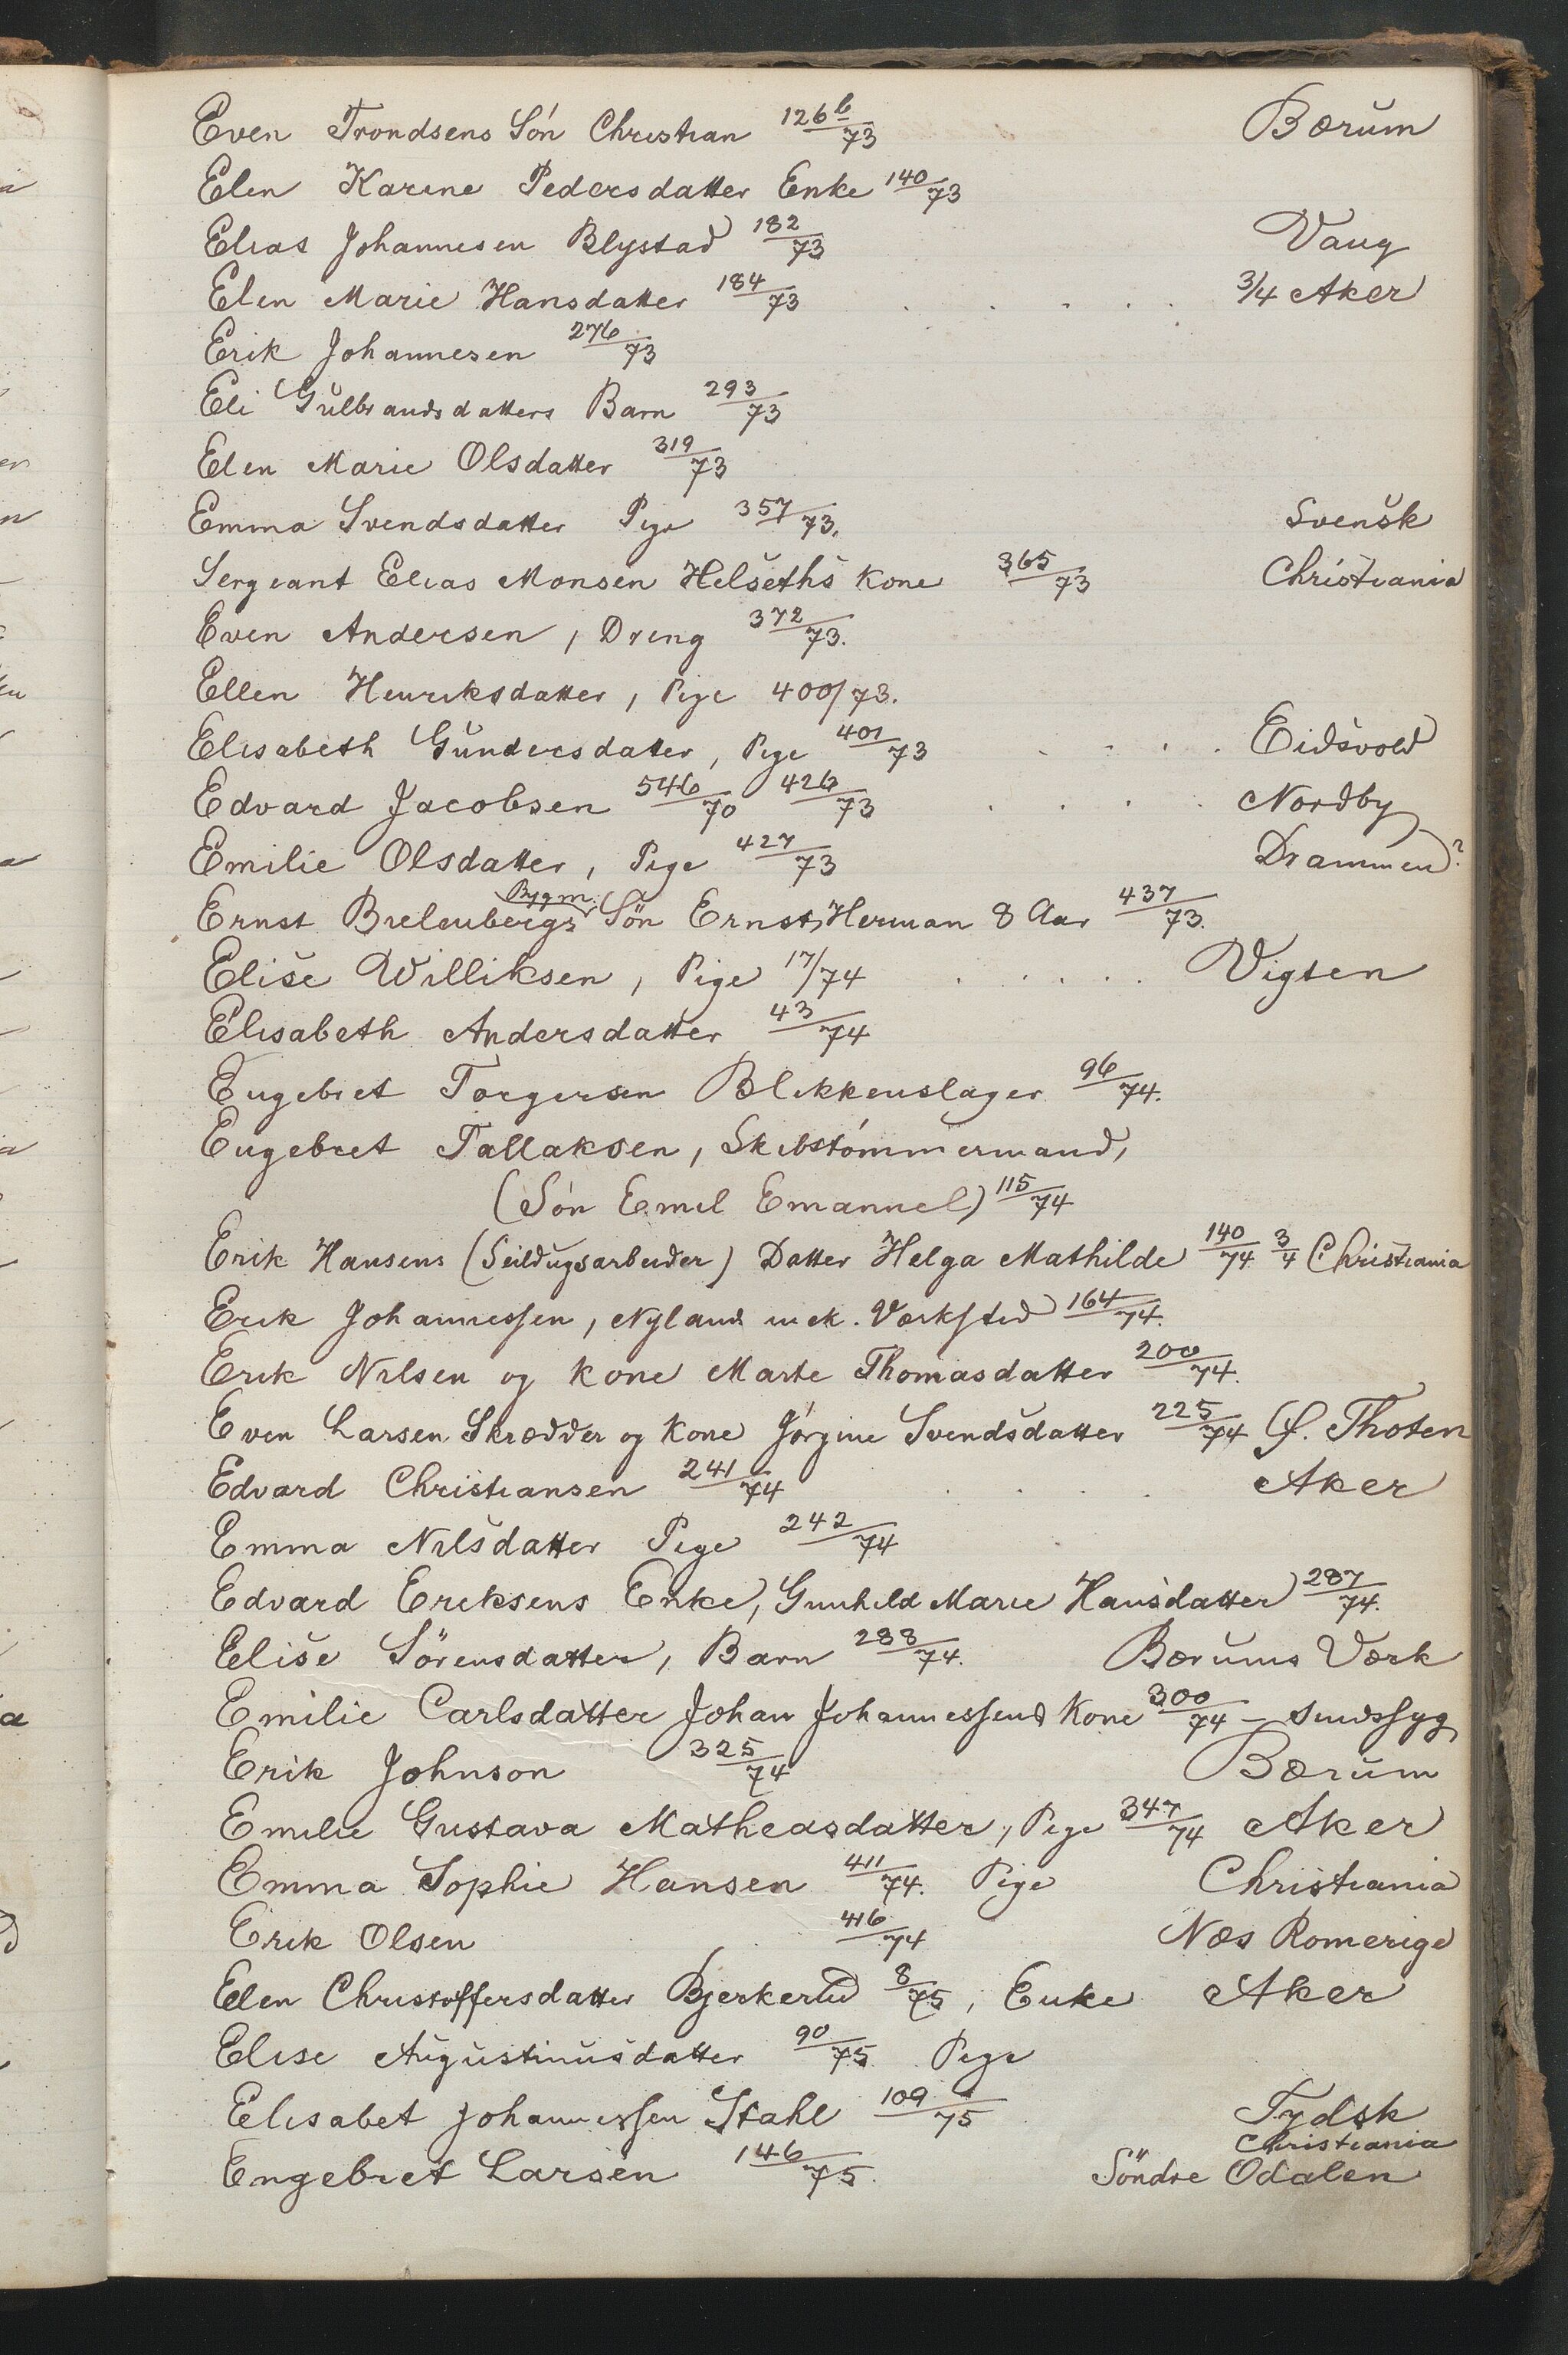 Even Trondsens Sön Christian 126b/73 Bærum
Elen Karine Pedersdatter Enke 140/73
Elias Johannesen Blystad 182/73 Vang
Elen Marie Hansdatter 184/73 . . . . 3/4 Aker
Erik Johannesen 276/73
Eli Gulbrandsdatters Barn 293/73
Elen Marie Olsdatter 319/73
Emma Svendsdatter Pige 357/73. Svensk
Sergeant Elias Monsen Helseths Kone 365/73 Christiania
Even Andersen, Dreng 372/73.
Ellen Henriksdatter, Pige 400/73.
Elisabeth Gundersdatter, Pige 401/73 . . . . Eidsvold
Edvard Jacobsen 546/70 426/73 . . . . Nordby
Emilie Olsdatter, Pige 427/73 Drammen?
Bygm.
Ernst Brelenbergs Sön Ernst Herman 8 Aar 437/73.
Elise Williksen, Pige 17/74 . . . . . Vigten
Elisabeth Andersdatter 43/74
Engebret Torgersen Blikkenslager 96/74.
Engebret Tallaksen, Skibstömmermand,
(Sön Emil Emanuel) 115/74
Erik Hansens (Seildugsarbeider) Datter Helga Mathilde 140/74 3/4 Christiania
Erik Johannessen, Nyland mek. Værksted 164/74.
Erik Nilsen og Kone Marte Thomasdatter 200/74.
Even Larsen Skrædder og Kone Jörgine Svendsdatter 225/74 Ø. Thoten
Edvard Christiansen 241/74 . . . . Aker
Emma Nilsdatter Pige 242/74
Edvard Eriksens Enke, Gunhild Marie Hansdatter 287/74.
Elise Sörensdatter, Barn 288/74. Bærums Værk
Emilie Carlsdatter Johan Johannessens Kone 300/74 – sindssyg
Erik Johnson 325/74 Bærum
Emilie Gustava Matheasdatter, Pige 347/74 Aker
Emma Sophie Hansen 411/74. Pige Christiania
Erik Olsen 416/74 Næs Romerige
Elen Christoffersdatter Bjerkerud 8/75, Enke Aker
Elise Augustinusdatter 90/75 Pige
Elisabet Johannessen Stahl 109/75 Tydsk
Christiania
Engebret Larsen 146/75. Söndre Odalen